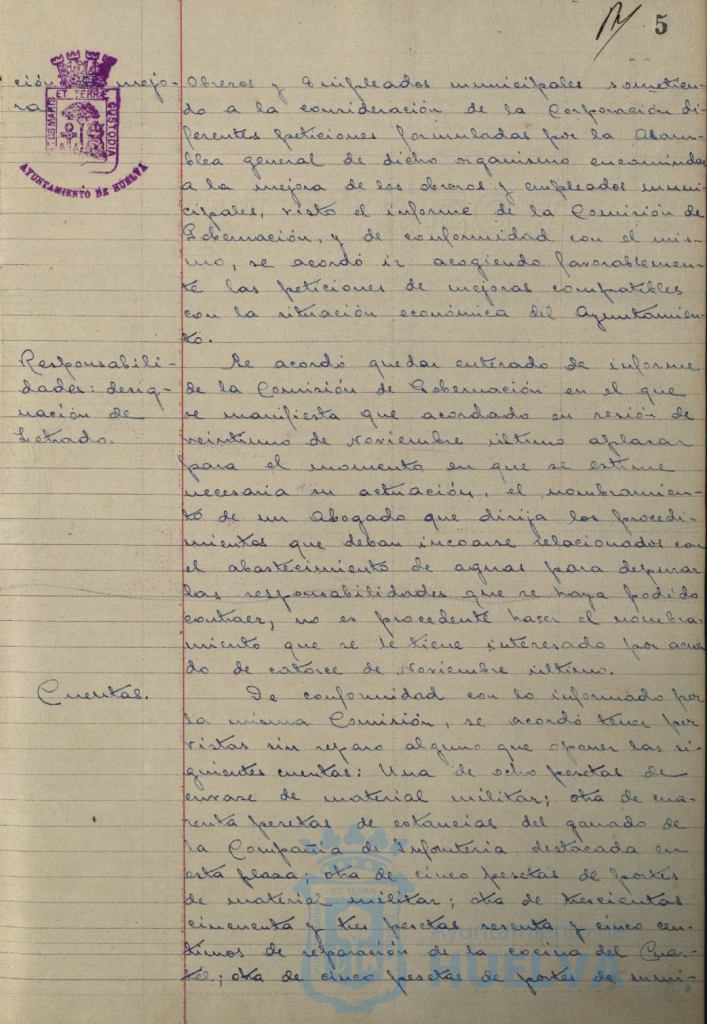 5
ción de mejo-
ra
ET TERRÆ
CUSTODIA
AYUNTAMIENTO DE HUELVA
Obreros y Empleados municipales sometien-
do a la consideración de la Corporación di-
ferentes peticiones formuladas por la Asam-
blea general de dicho organismo encaminadas
a la mejora de los obreros y empleados muni-
cipales, visto el informe de la Comisión de
Gobernación, y de conformidad con el mis-
mo, se acordó ir acogiendo favorablemen-
te las peticiones de mejoras compatibles
con la situación económica del Ayuntamien-
to.
Responsabili-
dades: desig-
nación de
Letrado.
Se acordó quedar enterado de informe
de la Comisión de Gobernación en el que
se manifiesta que acordado en sesión de
veintiuno de Noviembre último aplazar
para el momento en que se estime
necesaria su actuación, el nombramien-
to de un Abogado que dirija los procedi-
mientos que deban incoarse relacionados con
el abastecimiento de aguas para depurar
las responsabilidades que se haya podido
contraer, no es procedente hacer el nombra-
miento que se le tiene interesado por acuer-
do de catorce de Noviembre último.
Cuentas.
De conformidad con lo informado por
la misma Comisión, se acordó tener por
vistas sin reparo alguno que oponer las si-
guientes cuentas: Una de ocho pesetas de
envase de material militar; otra de cua-
renta pesetas de estancias del ganado de
la Compañía de Infantería destacada en
esta plaza; otra de cinco pesetas de portes
de material militar; otra de trescientas
cincuenta y tres pesetas sesenta y cinco cen-
timos de reparación de la cocina del Cuar-
tel; otra de cinco pesetas de portes de muni-
ET TERRÆ
Ayuntamiento
HUELVA